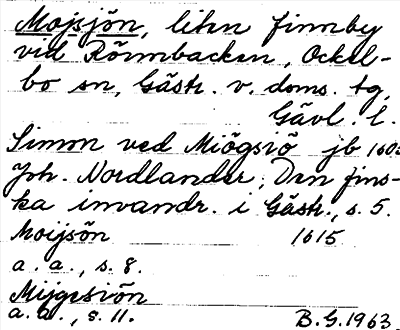 Mojsjön, liten finnby
vid Rönnbacken, Ockel-
bo sn, Gästr. v. doms. tg,
Gävl. l.
Simon ved Miögsiö jb
Joh. Nordlander, Den fins-
ka invandr. i Gästr., s. 5.
Moijsön 1615
a. a., s. 8.
Mijgesiön
a. a., s. 11. B.G. 1963